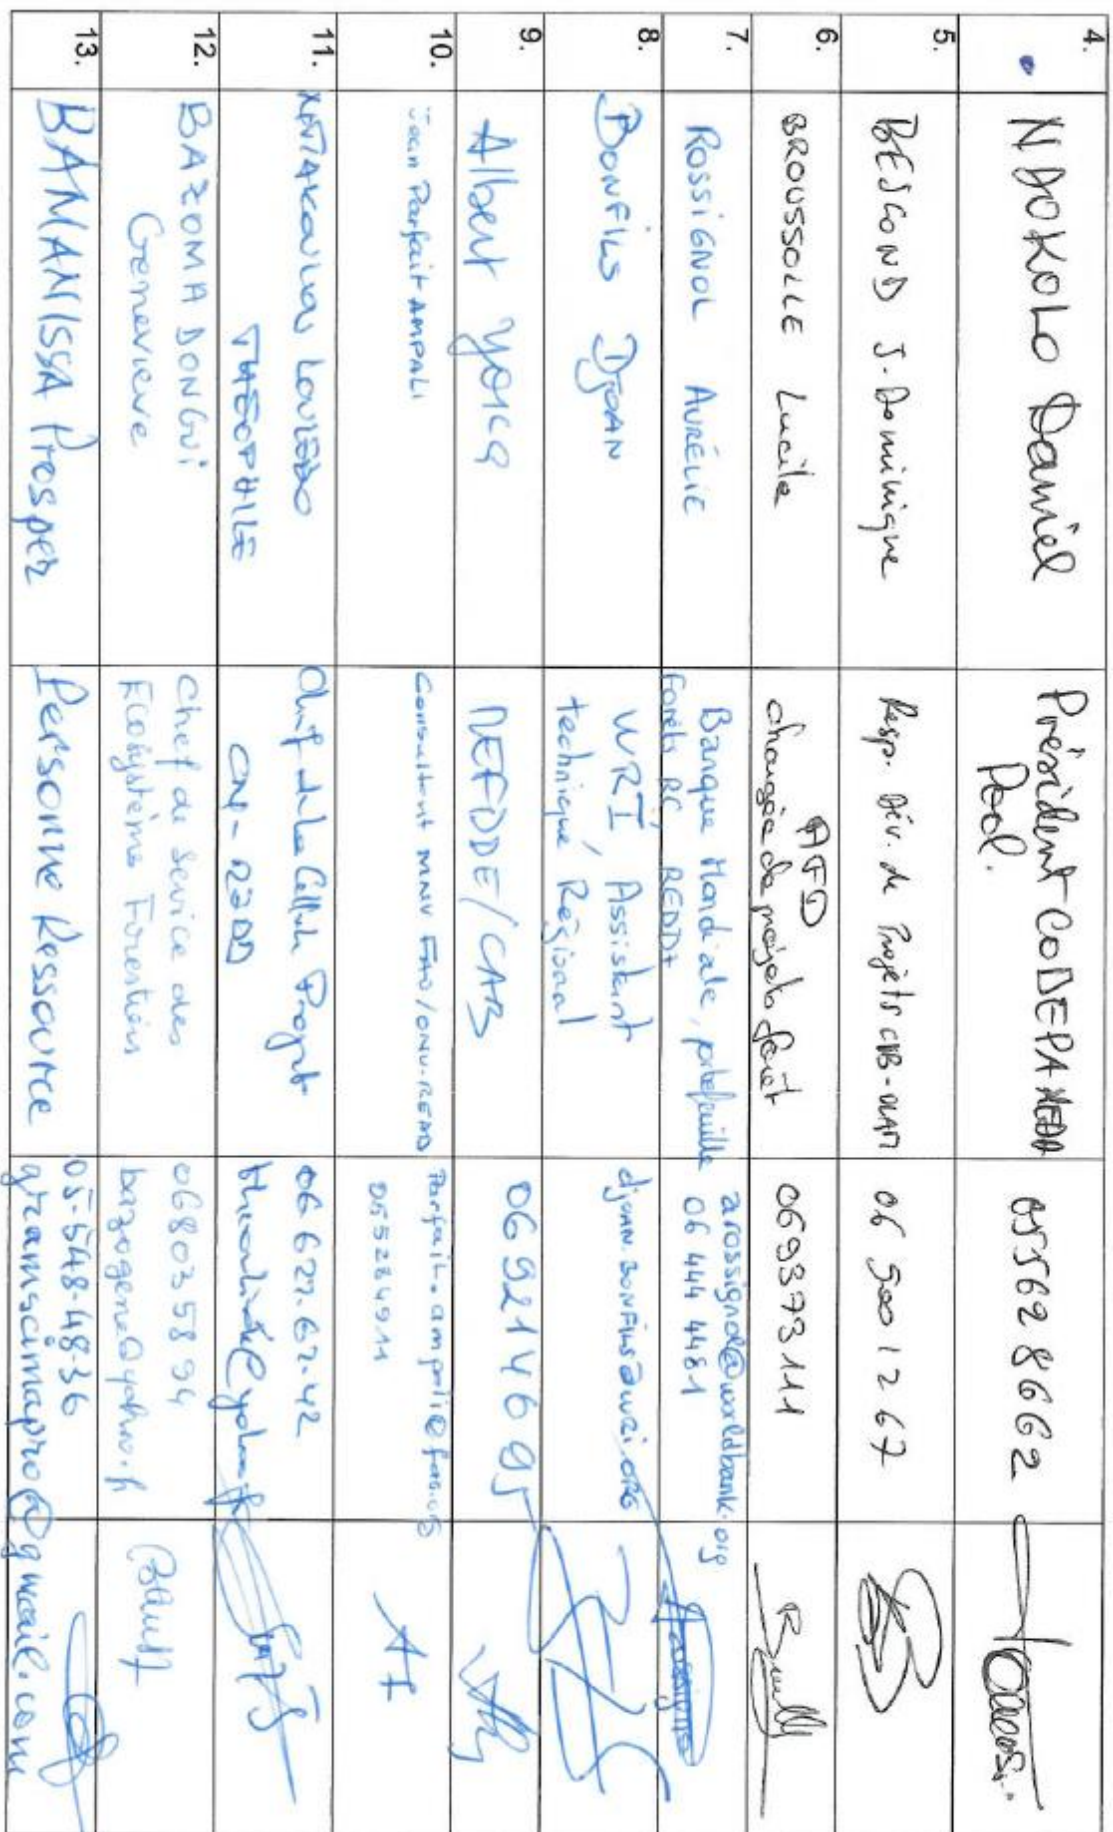 4.
NDOKOLO Daniel
Président CODEPA MEDD
Pool.
055628662
5.
BESCOND J-Dominique
Resp. Dév. de Projets CIB-OLAM
06 500 12 67
6.
BROUSSOLLE Lucile
AFD
chargée de projets forêt
069373111
7.
ROSSIGNOL AURÉLIE
Banque Mondiale, portefeuille
Forêts RC, REDD+
arossignol@worldbank.org
06 444 4481
8.
BONFILS DJOAN
WRI, Assistant
technique Régional
djoan.BONFILS@wri.ORG
9.
Albert
MEFDDE/CAB
069214609
10.
Jean Parfait AMPALI
Consultant MNV FAO/ONU-REDD
Parfait.ampali@fao.org
055284911
11.
LOUZEBO
THEOPHILE
Chef de la Cellule Projet
CN-REDD
06 627.62.42
12.
BAZOMA DONGUI
Genevieve
Chef de Service des
Ecosystèmes Forestiers
068035894
bazogene@yahoo.fr
13.
BAMANISSA Prosper
Personne Ressource
05-548-48-36
gramscimapro@gmail.com